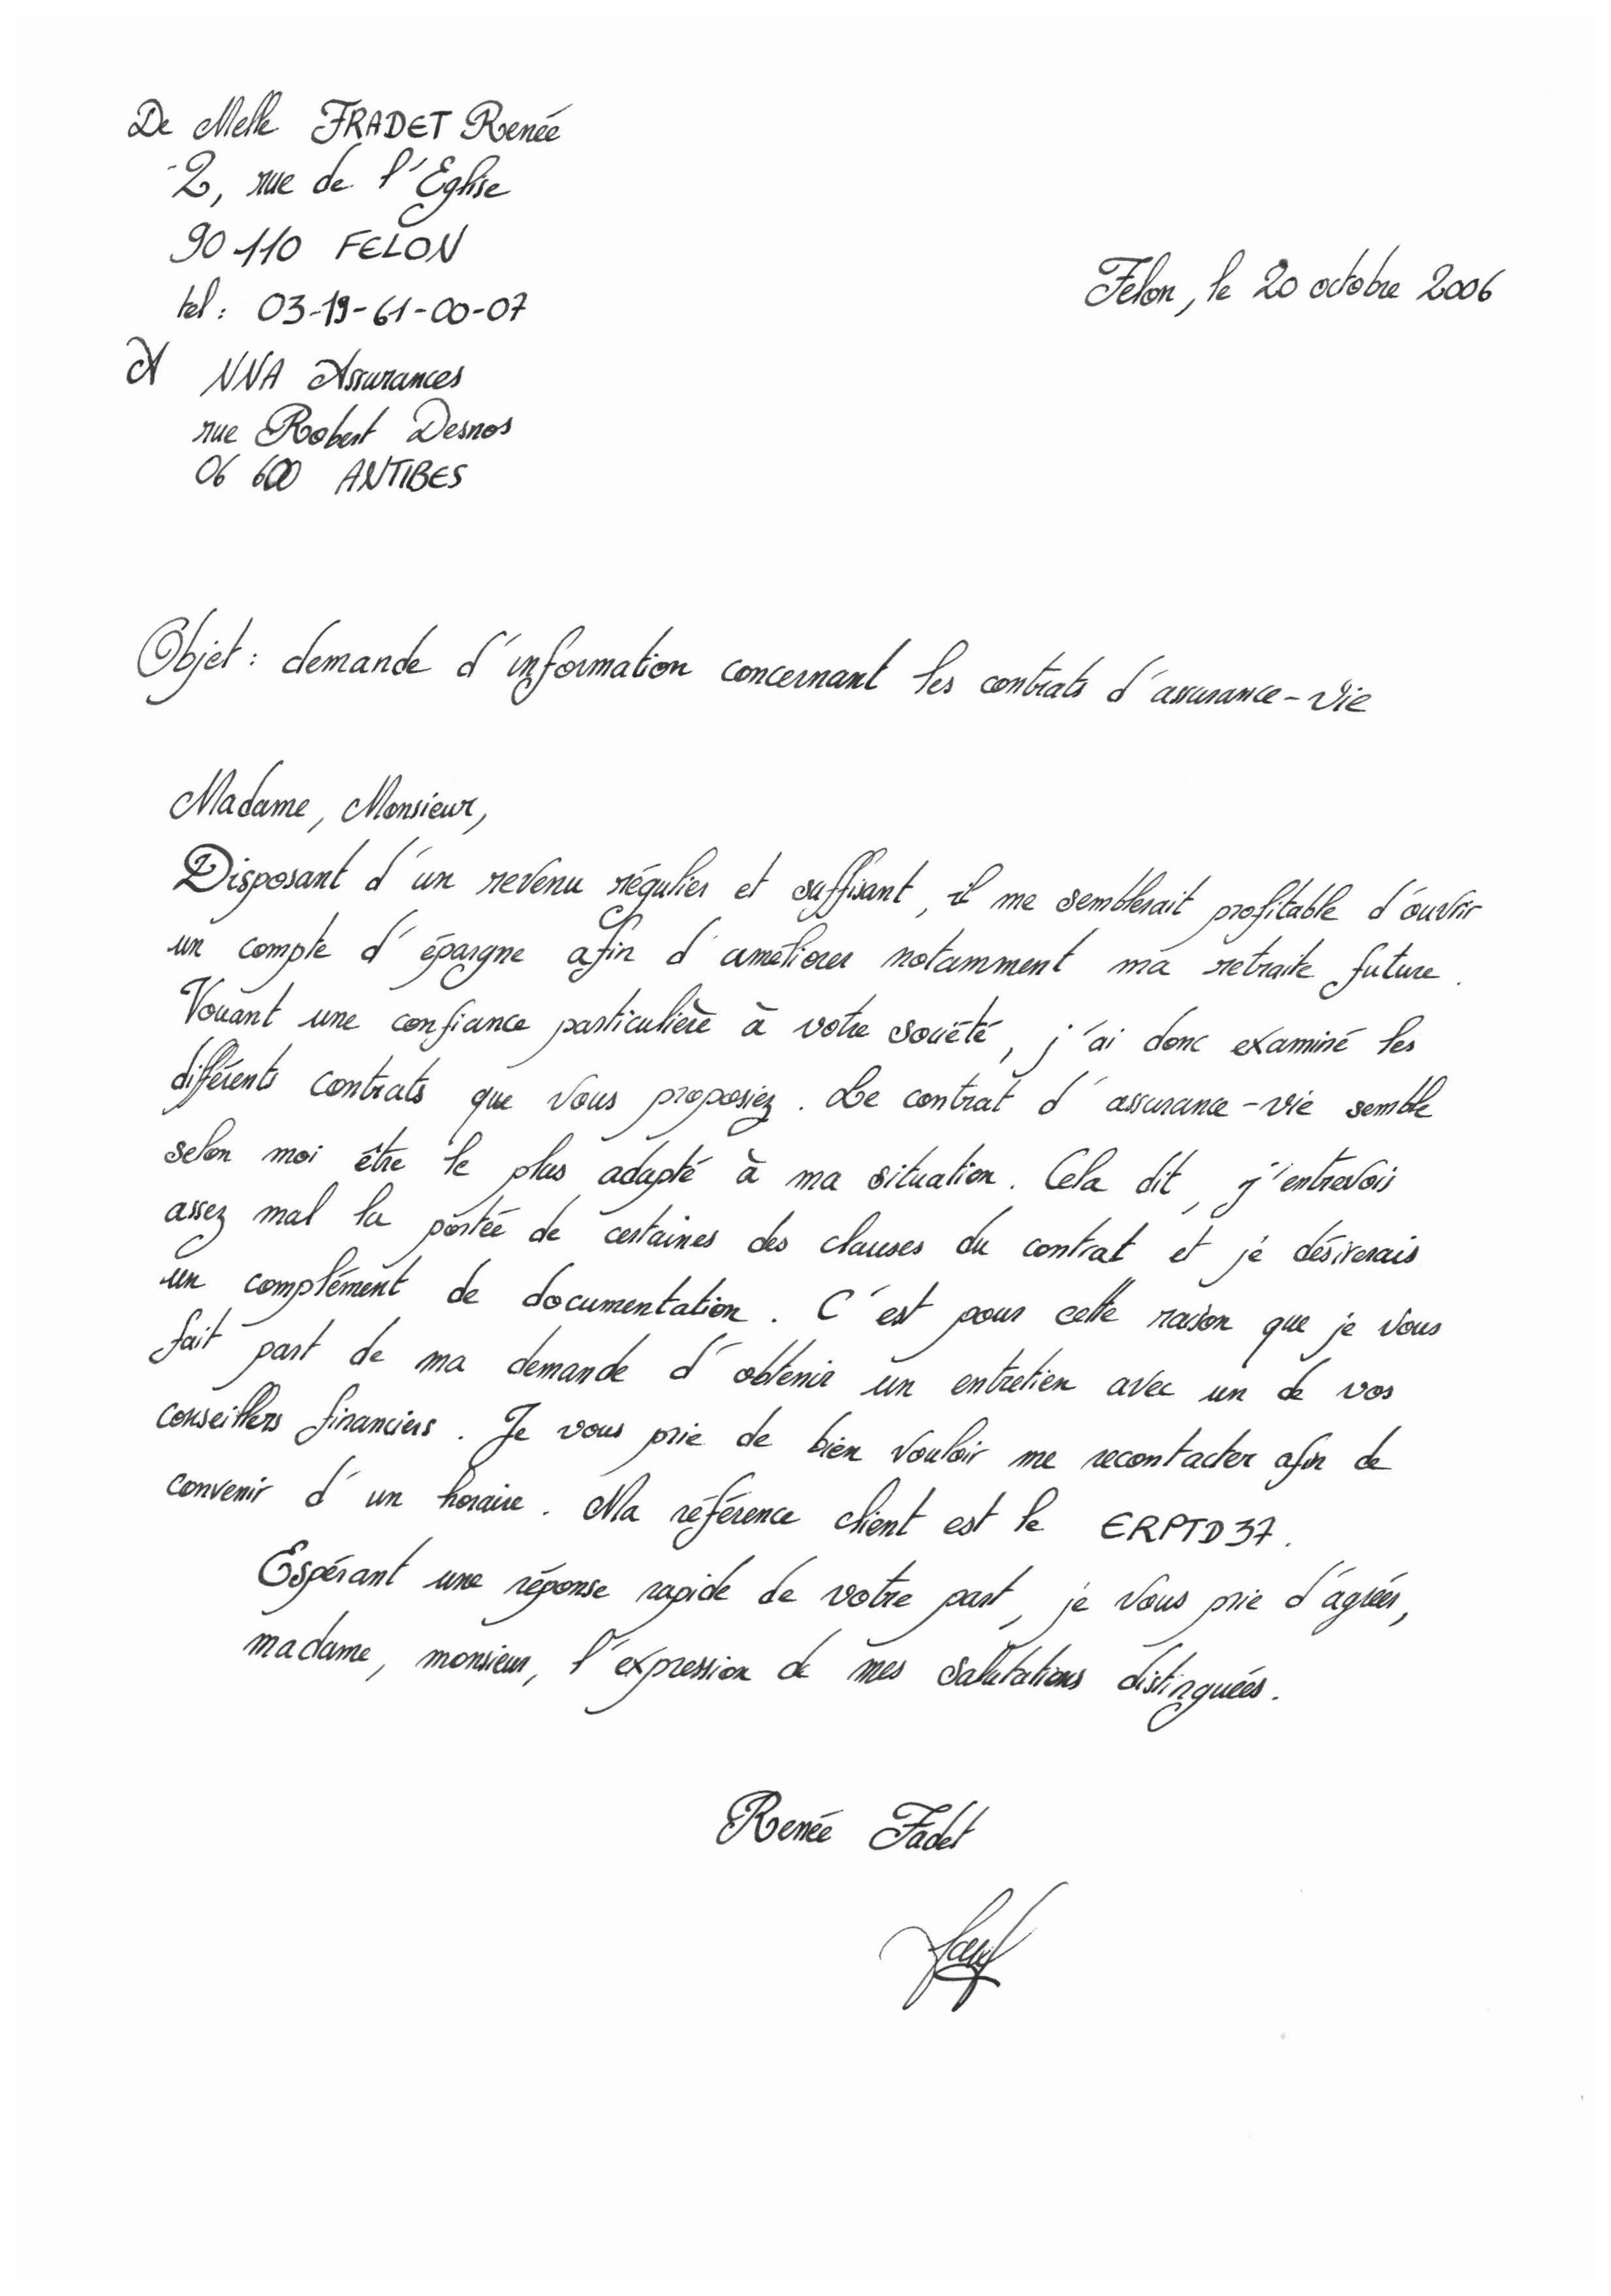 De Melle FRADET Renée
2, rue de l'Eglise
90 110 FELON
tel : 03-19-61-00-07
Felon, le 20 octobre 2006
A NNA Assurances
rue Robert Desnos
06 600 ANTIBES
Objet : demande d'information concernant les contrats d'assurance-vie
Madame, Monsieur,
Disposant d'un revenu régulier et suffisant, il me semblerait profitable d'ouvrir
un compte d'épargne afin d'améliorer notamment ma retraite future.
Vouant une confiance particulière à votre société, j'ai donc examiné les
différents contrats que vous proposiez. Le contrat d'assurance-vie semble
selon moi être le plus adapté à ma situation. Cela dit, j'entrevois
assez mal la portée de certaines des clauses du contrat et je désirerais
un complément de documentation. C'est pour cette raison que je vous
fait part de ma demande d'obtenir un entretien avec un de vos
conseillers financiers. Je vous prie de bien vouloir me recontacter afin de
convenir d'un horaire. Ma référence client est le ERPTD37.
Espérant une réponse rapide de votre part, je vous prie d'agréer,
madame, monsieur, l'expression de mes salutations distinguées.
Renée Fadet